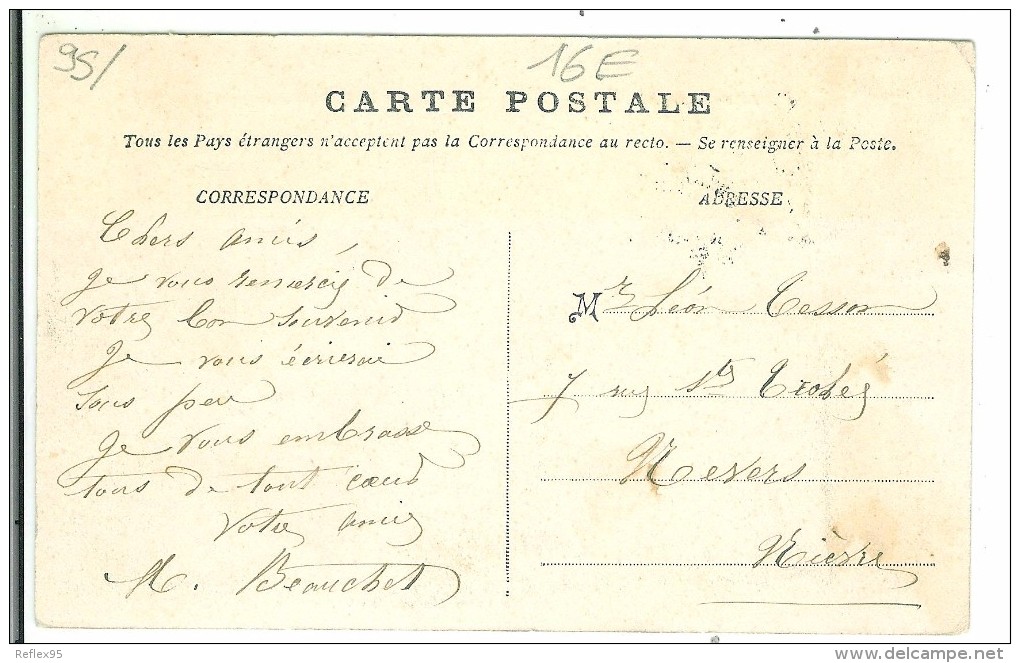 95/
16E
CARTE POSTALE
Tous les Pays étrangers n'acceptent pas la Correspondance au recto. — Se renseigner à la Poste.
CORRESPONDANCE
Chers amis,
je vous remercie de
votre bon souvenir
Je vous écrirai
sous peu
Je vous embrasse
tous de tout cœur
Votre amie
M. Beauchet
ADRESSE
Mr Léon Tesson
7 rue Ste
Nevers
Nièvre
Reflex95
delcampe.net